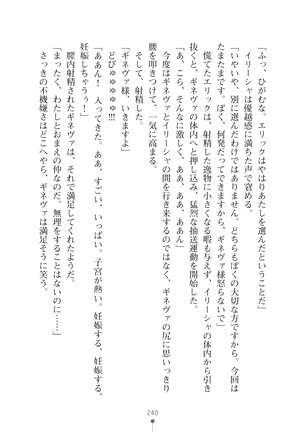 「ふっ、ひがむな。エリックはやはりあたしを選んだということだ」
イリーシャは優越感に満ちた声で窘める。
「いやいや、別に選んだわけではありません。どちらもぼくの大切な方ですから。今回は
たまたまです。ぼく、何発だってできますから、ギネヴァ様怒らないで」
慌てたエリックは、射精した逸物に小さくなる暇も与えず、イリーシャの体内から引き
抜くと、ギネヴァの体内へと押し込み、猛烈な抽送運動を開始した。
「あ、こら、そんなに激しく、ああ、ああ、ああん」
今度はギネヴァとイリーシャの間を行き来するのではなく、ギネヴァの尻に思いっきり
腰を叩きつけて、一気に高まる。
そして、射精した。
「ギネヴァ様、いきますよ」
どぴゅゅゅゅ!!!
「あああ！　入ってきた。ああ、すごい、いっぱい。子宮が熱い。妊娠する、妊娠する、
妊娠しちゃうぅ！」
膣内射精されたギネヴァは、それで満足してくれたようだ。
「まったく、わたしとおまえの仲なのだ。無理をすることはないのに……」
さっきの不機嫌さはどこへやら、ギネヴァは満足そうに笑う。
240